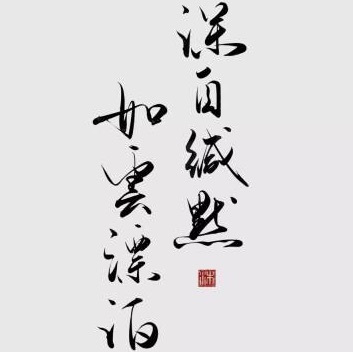 深自缄默
如雲漂泊